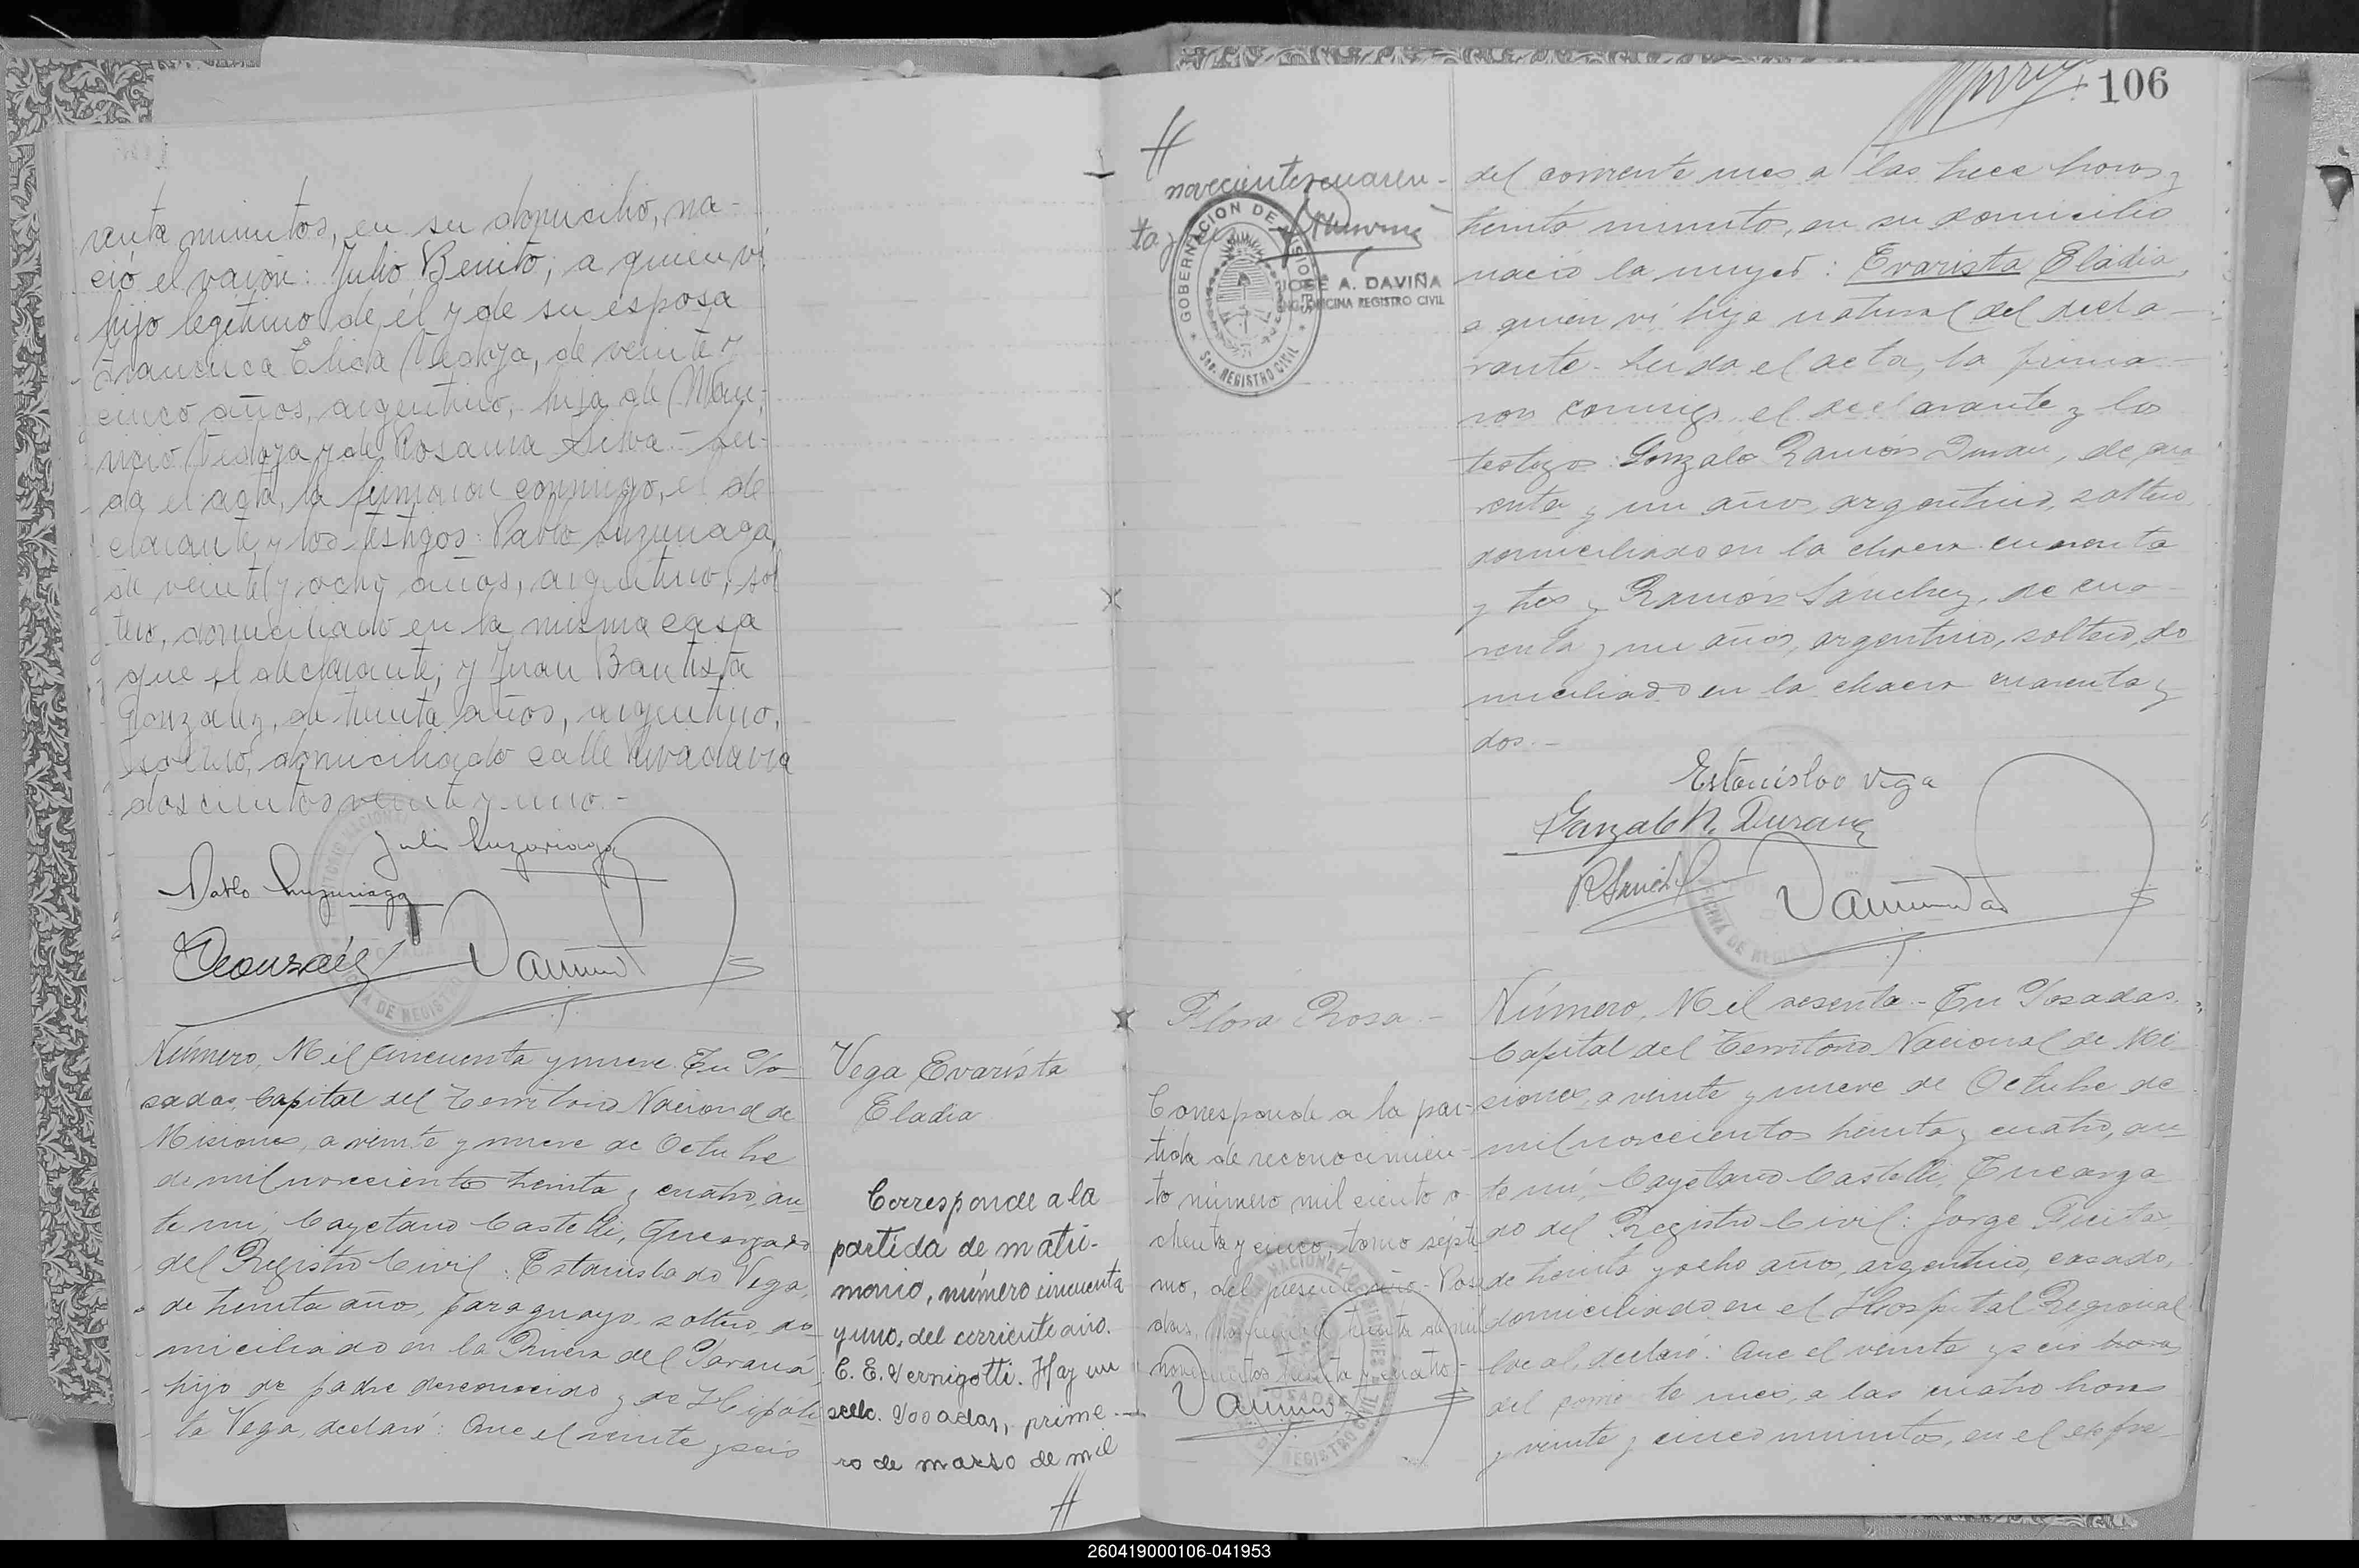 renta minutos, en su domicilio, na-
ció el varón: Julio Benito; a quien vi,
hijo legítimo de él y de su esposa
Francisca Elida Vedoya, de veinte y
cinco años, argentina, hija de Mau-
ricio Vedoya y de Rosaura Silva.- Leí-
da el acta, la firmaron conmigo, el de-
clarante y los testigos: Pablo Luzuriaga,
de veinte y ocho años, argentino, sol
tero, domiciliado en la misma casa
que el declarante; y Juan Bautista
González, de treinta años, argentino,
soltero, domiciliado calle Rivadavia
doscientos veinte y uno.-
Julio Luzuriaga
Pablo Luzuriaga
González
Número, Mil cincuenta y nueve. En Po-
sadas, Capital del Territorio Nacional de
Misiones, a veinte y nueve de Octubre
de mil novecientos treinta y cuatro, an-
te mí, Cayetano Castelli, Encargado
del Registro Civil: Estanislado Vega,
de treinta años, paraguayo, soltero, do-
miciliado en la Rivera del Paraná,
hijo de padre desconocido y de Hipóli
ta Vega, declaró: Que el veinte y seis
Vega Evarista
Eladia
Corresponde a la
partida de matri-
monio, número cincuenta
y uno, del corriente año.
C. E. Vernigotti. Hay un
sello. Posadas, prime-
ro de marzo de mil
//
106
//
novecientos cuaren-
ta y
GOBERNACION DE MISIONES
Sec. REGISTRO CIVIL
JOSE A. DAVIÑA
ENC. OFICINA REGISTRO CIVIL
del corriente mes a las trece horas y
treinta minutos, en su domicilio
nació la mujer: Evarista Eladia,
a quien ví hija natural del decla-
rante.- Leída el acta, la firma-
ron conmigo el declarante y los
testigos: Gonzalo Ramón Duran, de cua
renta y un años, argentino, soltero,
domiciliado en la chacra cuarenta
y tres y Ramón Sánchez, de cua-
renta y un años, argentino, soltero, do
miciliado en la chacra cuarenta y
dos.-
Estanislao Vega
Gonzalo R. Duran
R Sanchez
Flora Rosa.-
Corresponde a la par-
tida de reconocimien-
to número mil ciento o-
chenta y cinco, tomo sépti
mo, del presente año.- Posa
das, treinta de mil
novecientos treinta y cuatro.-
Número, Mil sesenta.- En Posadas,
Capital del Territorio Nacional de Mi-
siones, a veinte y nueve de Octubre de
mil novecientos treinta y cuatro, an-
te mí, Cayetano Castelli, Encarga-
do del Registro Civil: Jorge
de treinta y ocho años, argentino, casado,
domiciliado en el Hospital Regional
local, declaró: Que el veinte y seis horas
del corriente mes, a las cuatro horas
y veinte y cinco minutos, en el expre